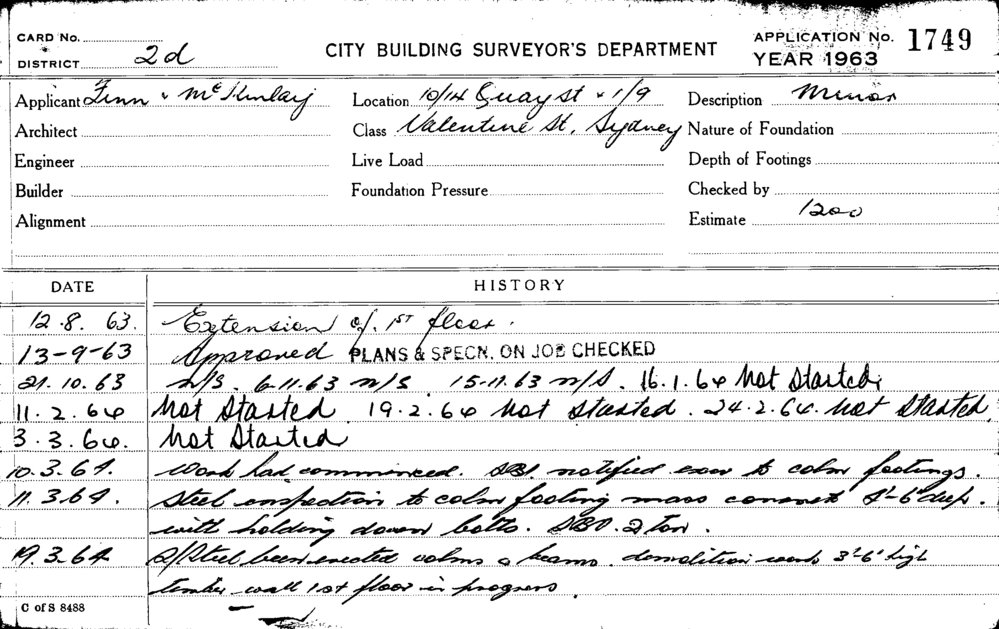 CARD No.
DISTRICT 2d
CITY BUILDING SURVEYOR'S DEPARTMENT
APPLICATION No. 1749
YEAR 1963
Applicant Finn & McKinlay
Location 10/14 Quay St & 1/9
Description Minor
Architect
Class Valentine St, Sydney
Nature of Foundation
Engineer
Live Load
Depth of Footings
Builder
Foundation Pressure
Checked by
Alignment
Estimate 1200
DATE HISTORY
12.8.63. Extension of 1ST floor.
13-9-63 Approved PLANS & SPECN. ON JOB CHECKED
21.10.63 N/S. 6-11.63 N/S 15-11.63 N/S. 16.1.64 Not Started
11.2.64 Not Started 19.2.64 Not Started. 24.2.64. Not Started
3.3.64. Not Started
10.3.64. Work had commenced. notified excav to colm footings.
11.3.64. Steel inspection to colm footing mass concrete deep.
with holding down bolts. 2 ton.
19.3.64 S/Steel been erected colms & beams. demolition work 3'-6" high
timber wall 1st floor in progress.
C of S 8488